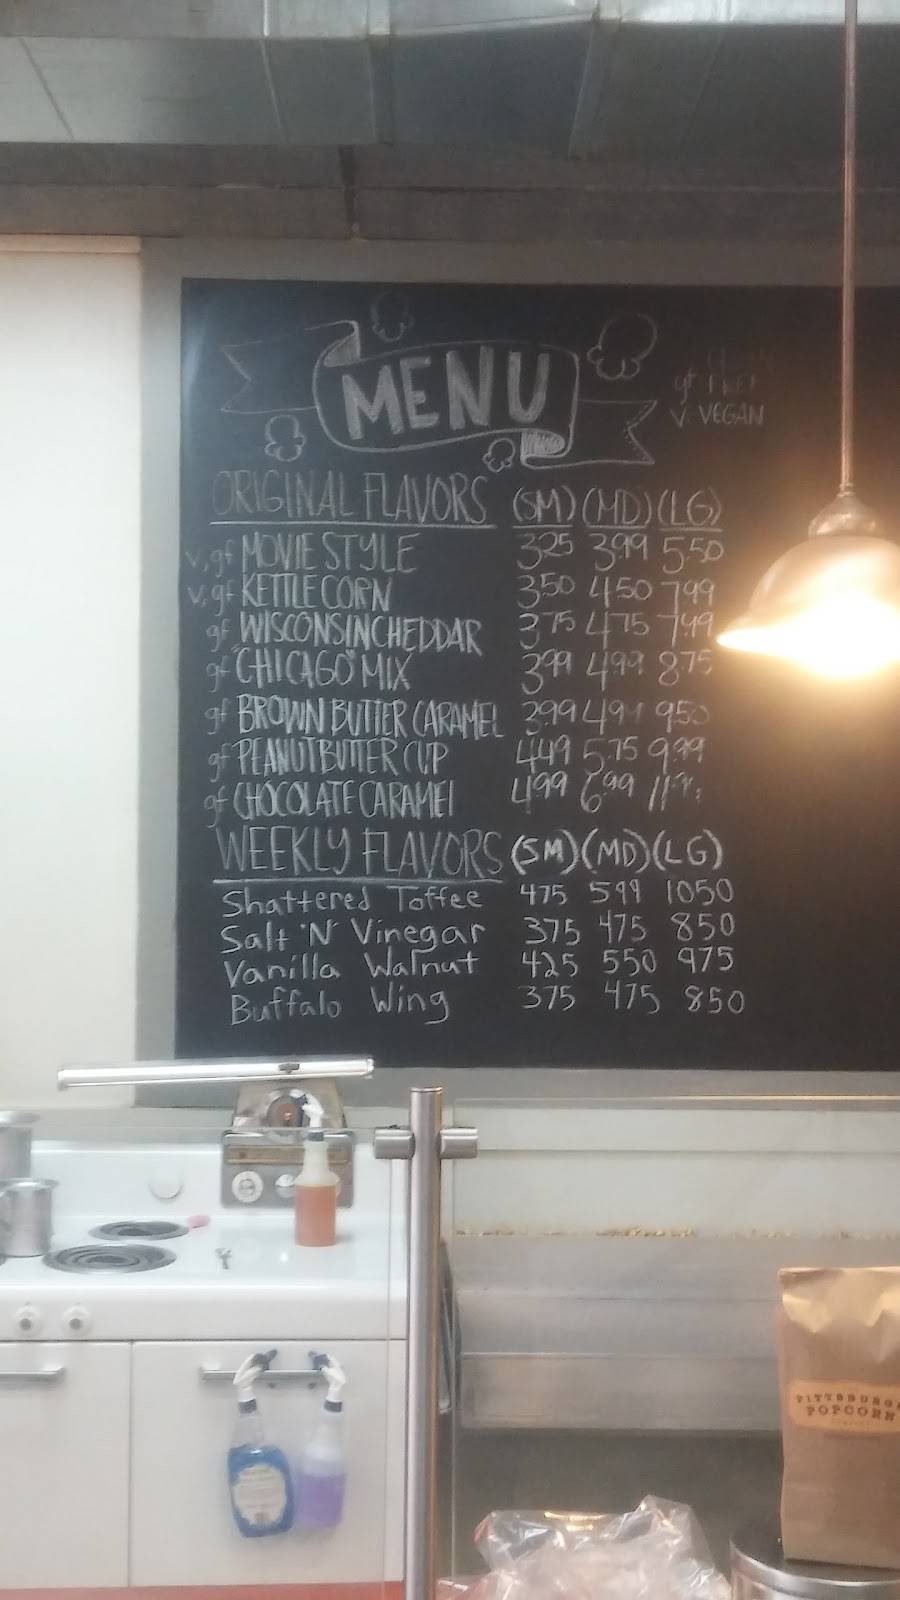 MENU
gf. FREE
V. VEGAN
ORIGINAL FLAVORS (SM) (MD) (LG)
v, gf MOVIE STYLE 3.25 3.99 5.50
v, gf KETTLE CORN 3.50 4.50 7.99
gf WISCONSIN CHEDDAR 3.75 4.75 7.99
gf "CHICAGO" MIX 3.99 4.99 8.75
gf BROWN BUTTER CARAMEL 3.99 4.99 9.50
gf PEANUT BUTTER CUP 4.49 5.75 9.99
gf CHOCOLATE CARAMEL 4.99 6.99
WEEKLY FLAVORS (SM) (MD) (LG)
Shattered Toffee 475 599 1050
Salt 'N' Vinegar 375 475 850
Vanilla Walnut 425 550 975
Buffalo Wing 375 475 850
PITTSBURGH
POPCORN